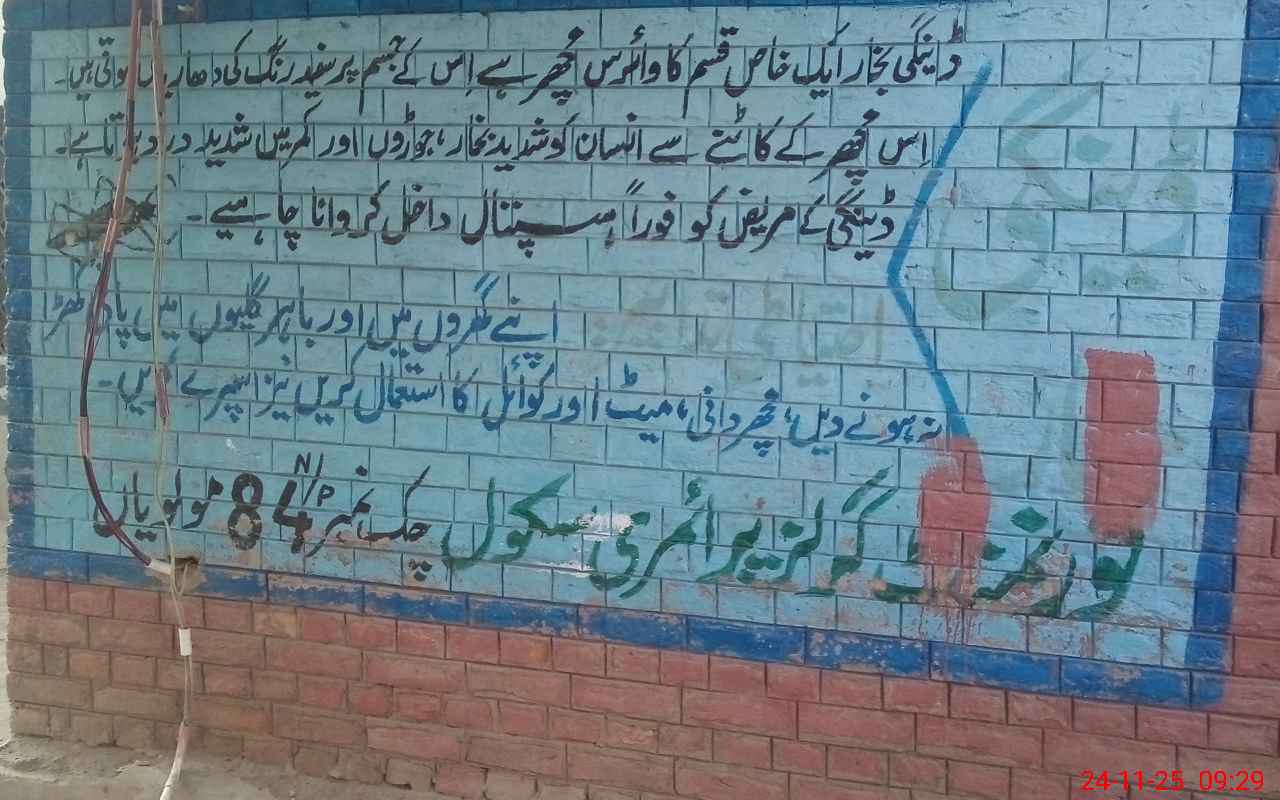 ڈینگی
ڈینگی بخار ایک خاص قسم کا وائرس مچھر ہے اِس کے جسم پر سفید رنگ کی دھاریاں ہوتی ہیں۔
اِس مچھر کے کاٹنے سے انسان کو شدید بخار، جوڑوں اور کمر میں شدید درد ہوتا ہے۔
ڈینگی کے مریض کو فوراً ہسپتال داخل کروانا چاہیے۔
احتیاطی تدابیر:
اپنے گھروں میں اور باہر گلیوں میں پانی کھڑا
نہ ہونے دیں، مچھر دانی، میٹ اور کوائل کا استعمال کریں نیز اسپرے کریں۔
گورنمنٹ گرلز پرائمری سکول چک نمبر 84 N/P مولویاں
24-11-25 09:29